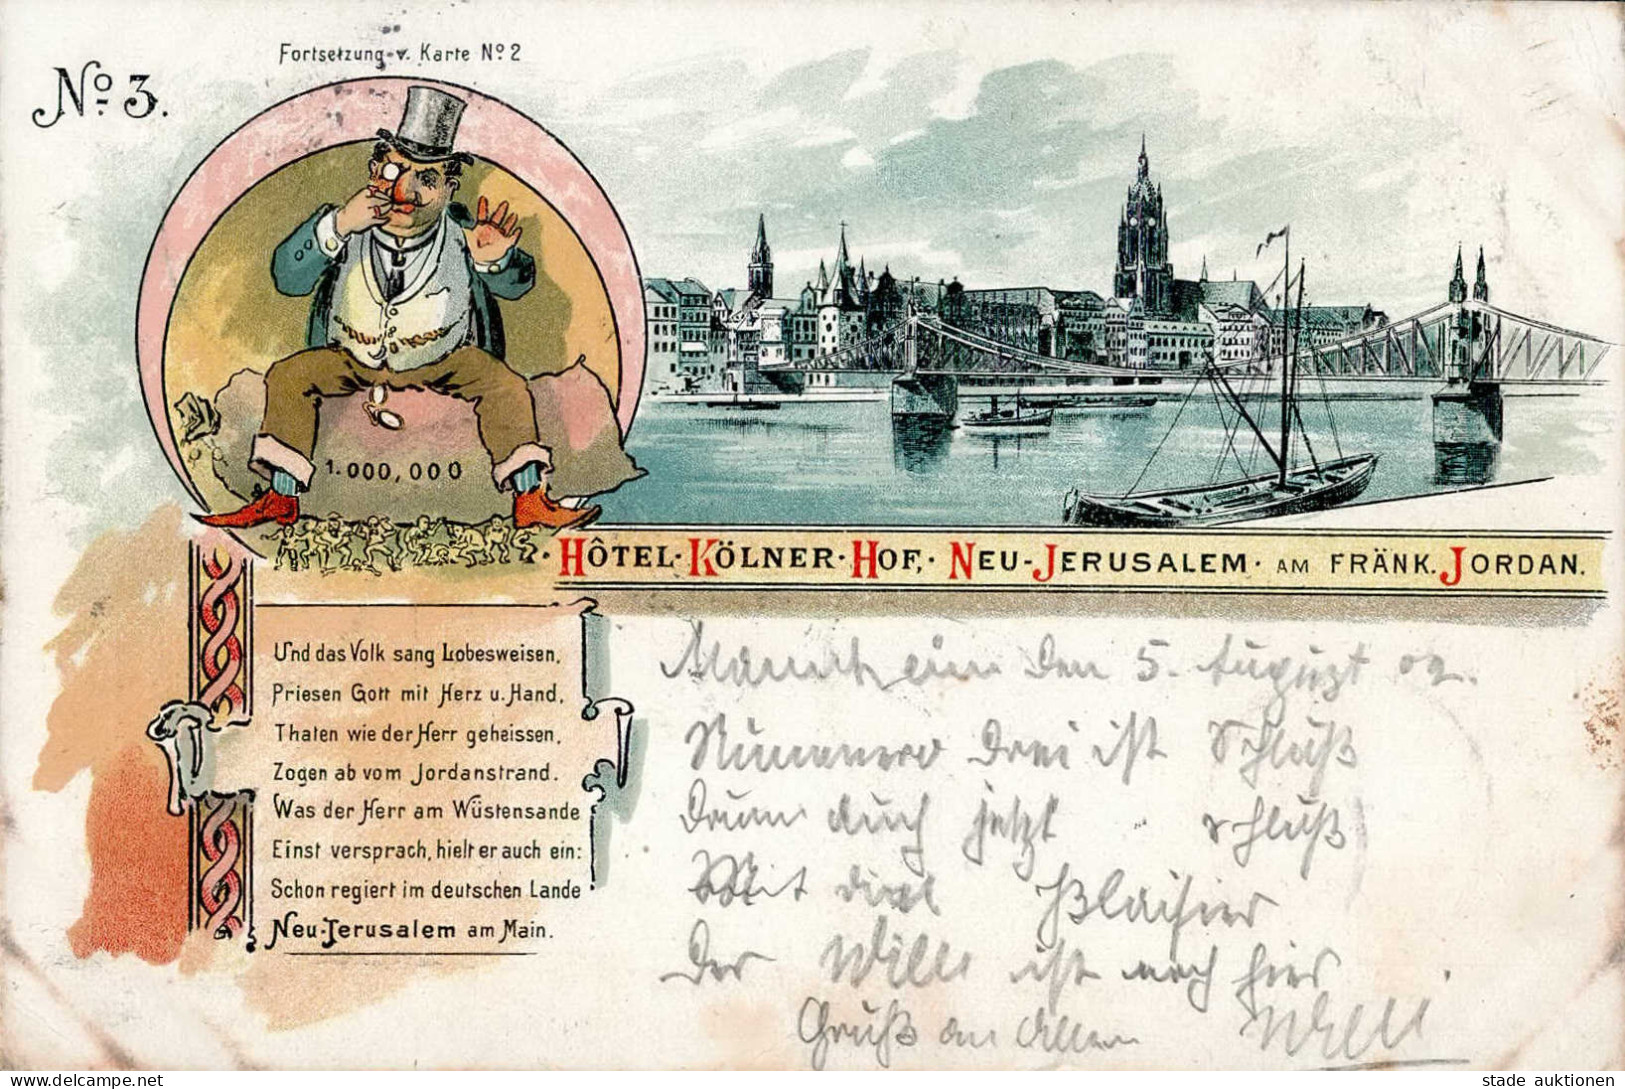 Fortsetzung v. Karte No. 2
No. 3.
1.000,000
HÔTEL·KÖLNER·HOF,·NEU-JERUSALEM· AM FRÄNK. JORDAN.
Und das Volk sang Lobesweisen,
Priesen Gott mit Herz u. Hand,
Thaten wie der Herr geheissen,
Zogen ab vom Jordanstrand.
Was der Herr am Wüstensande
Einst versprach, hielt er auch ein:
Schon regiert im deutschen Lande
Neu-Jerusalem am Main.
Mannheim den 5. August 02.
Nummero drei ist Schluß
Drum auch jetzt schluß
Mit viel Plaisier
Der Willi ist noch hier
Gruß an Allen Willi
stade auktionen